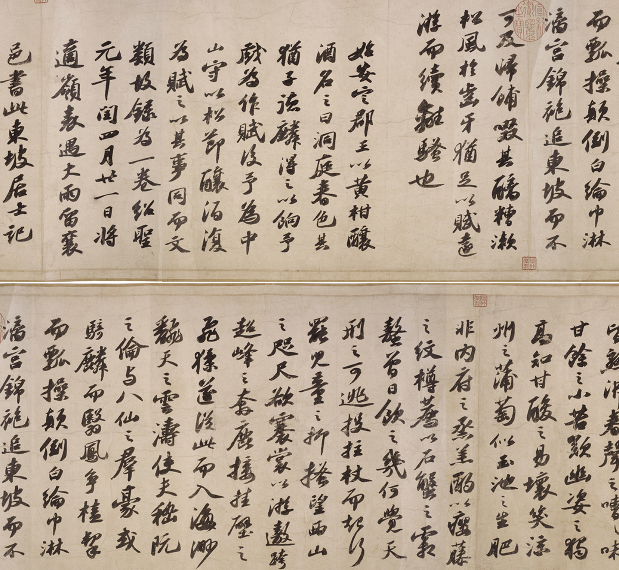 而瓢操顛倒白綸巾淋
漓宮錦袍追東坡而不
可及歸餔歠其醨糟漱
松風於齒牙猶足以賦遠
游而續離騷也
始安定郡王以黃柑釀
酒名之曰洞庭春色其
猶子德麟得之以餉予
戲為作賦後予為中
山守以松節釀酒復
為賦之以其事同而文
類故錄為一卷紹聖
元年閏四月廿一日將
適嶺表遇大雨留襄
邑書此東坡居士記
皆熟沸春聲之嘈々味
甘餘之小苦歎幽姿之獨
高知甘酸之易壞笑涼
州之蒲萄似玉池之生肥
非內府之蒸羔酌以癭藤
之紋樽薦以石蟹之霜
螯曾日飲之幾何覺天
刑之可逃投拄杖而起行
罷兒童之抑搔望西山
之咫尺欲褰裳以游遨跨
超峰之奔鹿接挂壁之
飛猱遂從此而入海渺
翻天之雲濤使夫嵇阮
之倫與八仙之群豪或
騎麟而翳鳳爭榼挈
而瓢操顛倒白綸巾淋
漓宮錦袍追東坡而不